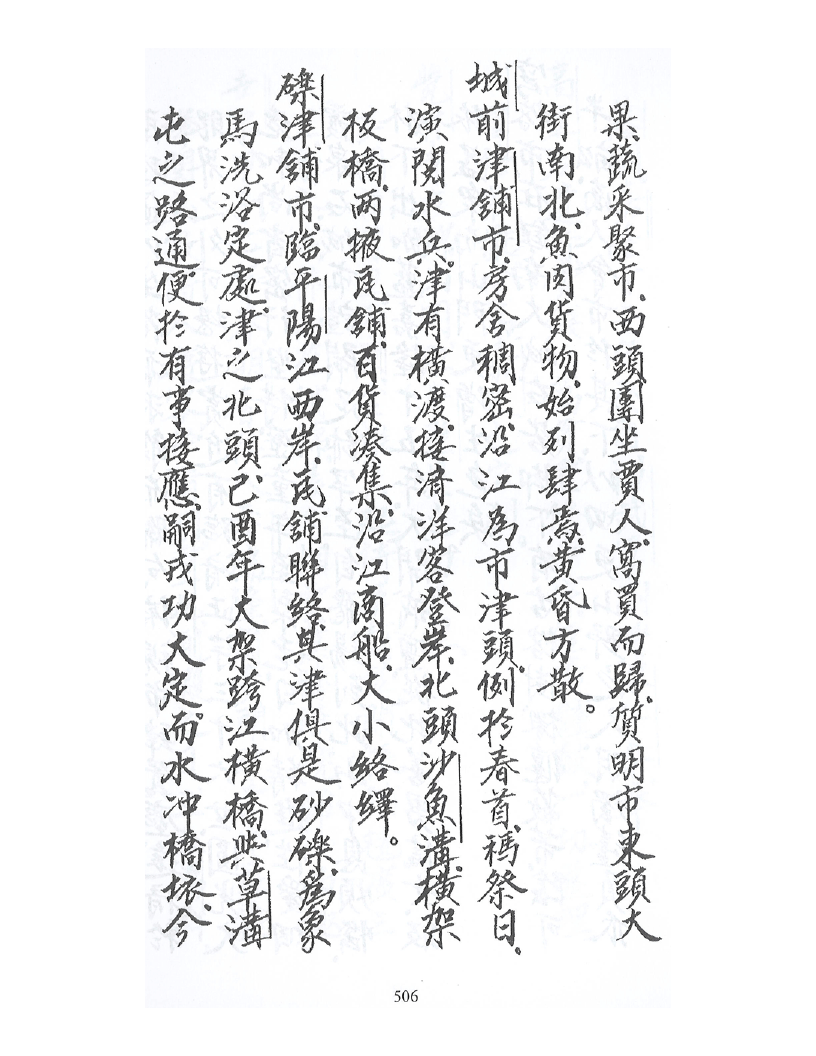 果蔬采聚市、西頭團坐賈人、窩買而歸、質明市東頭大
街南北、魚肉貨物、始列肆焉、黃昏方散。
城前津鋪市、房舍稠密、沿江為市津頭、例於春首、禡祭日、
演閱水兵、津有橫渡、接濟洋客登岸、北頭沙魚溝、橫架
板橋、兩掖民鋪、百貨湊集、沿江商船、大小絡繹。
礫津鋪市、臨平陽江西岸、民鋪聯絡、其津俱是砂礫、為象
馬洗浴定處、津之北頭、己酉年大架跨江橫橋、與草溝
屯之路通、便於有事接應、嗣戎功大定、而水冲橋坏、今
506